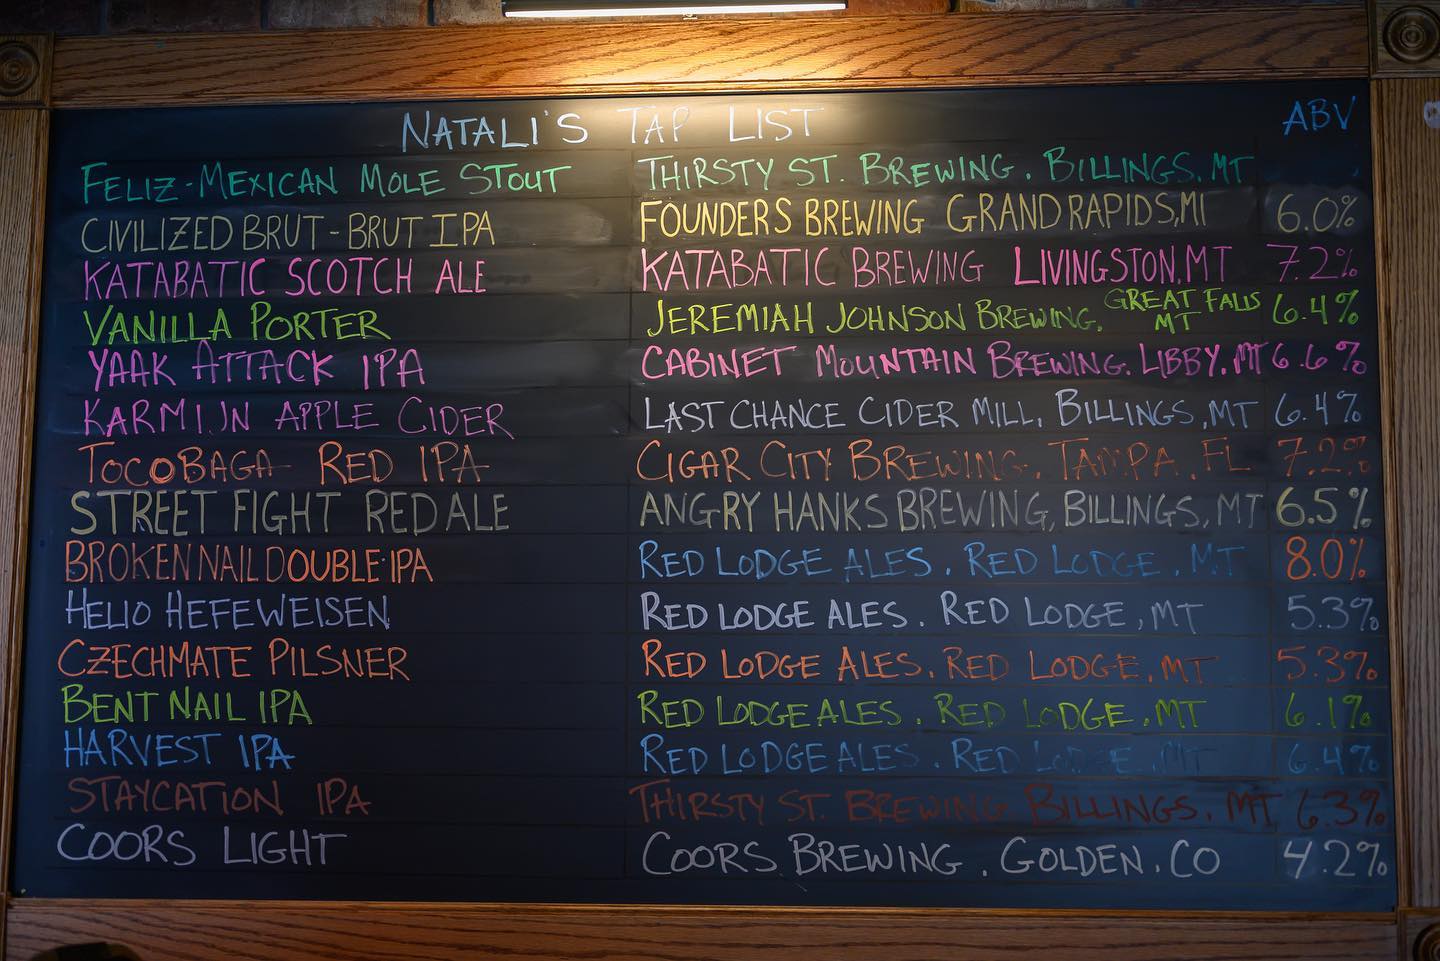 NATALI'S TAP LIST ABV
FELIZ-MEXICAN MOLE STOUT THIRSTY ST. BREWING. BILLINGS, MT
CIVILIZED BRUT - BRUT IPA FOUNDERS BREWING GRAND RAPIDS, MI 6.0%
KATABATIC SCOTCH ALE KATABATIC BREWING LIVINGSTON, MT 7.2%
VANILLA PORTER JEREMIAH JOHNSON BREWING. GREAT FALLS MT 6.4%
YAAK ATTACK IPA CABINET MOUNTAIN BREWING. LIBBY. MT 6.6%
KARMIJN APPLE CIDER LAST CHANCE CIDER MILL, BILLINGS, MT 6.4%
TOCOBAGA RED IPA CIGAR CITY BREWING. TAMPA. FL 7.2%
STREET FIGHT RED ALE ANGRY HANKS BREWING, BILLINGS, MT 6.5%
BROKEN NAIL DOUBLE IPA RED LODGE ALES. RED LODGE. MT 8.0%
HELIO HEFEWEISEN RED LODGE ALES. RED LODGE, MT 5.3%
CZECHMATE PILSNER RED LODGE ALES. RED LODGE. MT 5.3%
BENT NAIL IPA RED LODGE ALES. RED LODGE. MT 6.1%
HARVEST IPA RED LODGE ALES. RED LODGE. MT 6.4%
STAYCATION IPA THIRSTY ST. BREWING BILLINGS. MT 6.3%
COORS LIGHT COORS BREWING. GOLDEN. CO 4.2%